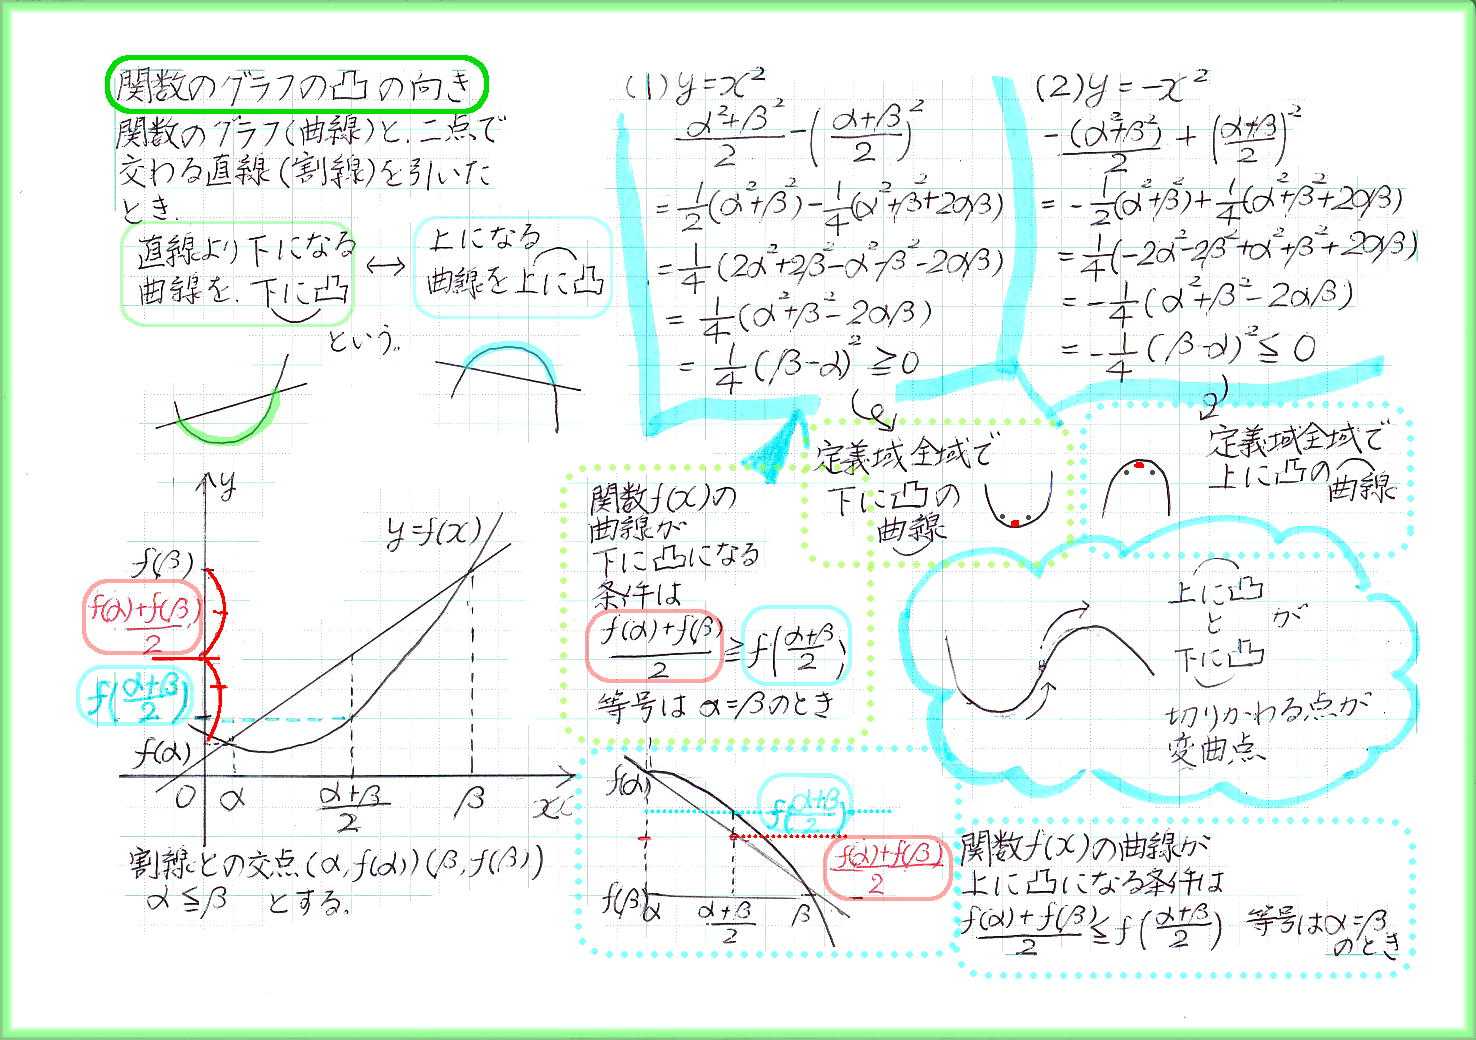 関数のグラフの凸の向き
関数のグラフ(曲線)と、二点で
交わる直線(割線)を引いた
とき、
直線より下になる
曲線を、下に凸
↔
上になる
曲線を上に凸
という。
y
y=f(x)
f(β)
f(α)+f(β)/2
f(α+β/2)
f(α)
O α α+β/2 β x
割線との交点(α,f(α))(β,f(β))
α≦β とする。
(1) y=x²
α²+β²/2-(α+β/2)²
=1/2(α²+β²)-1/4(α²+β²+2αβ)
=1/4(2α²+2β²-α²-β²-2αβ)
=1/4(α²+β²-2αβ)
=1/4(β-α)²≧0
定義域全域で
下に凸の
曲線
(2) y=-x²
-(α²+β²)/2+(α+β/2)²
=-1/2(α²+β²)+1/4(α²+β²+2αβ)
=1/4(-2α²-2β²+α²+β²+2αβ)
=-1/4(α²+β²-2αβ)
=-1/4(β-α)²≦0
定義域全域で
上に凸の曲線
関数f(x)の
曲線が
下に凸になる
条件は
f(α)+f(β)/2≧f(α+β/2)
等号はα=βのとき
上に凸
と が
下に凸
切りかわる点が
変曲点
f(α)
f(α+β/2)
f(α)+f(β)/2
f(β)
α α+β/2 β
関数f(x)の曲線が
上に凸になる条件は
f(α)+f(β)/2≦f(α+β/2) 等号はα=β
のとき